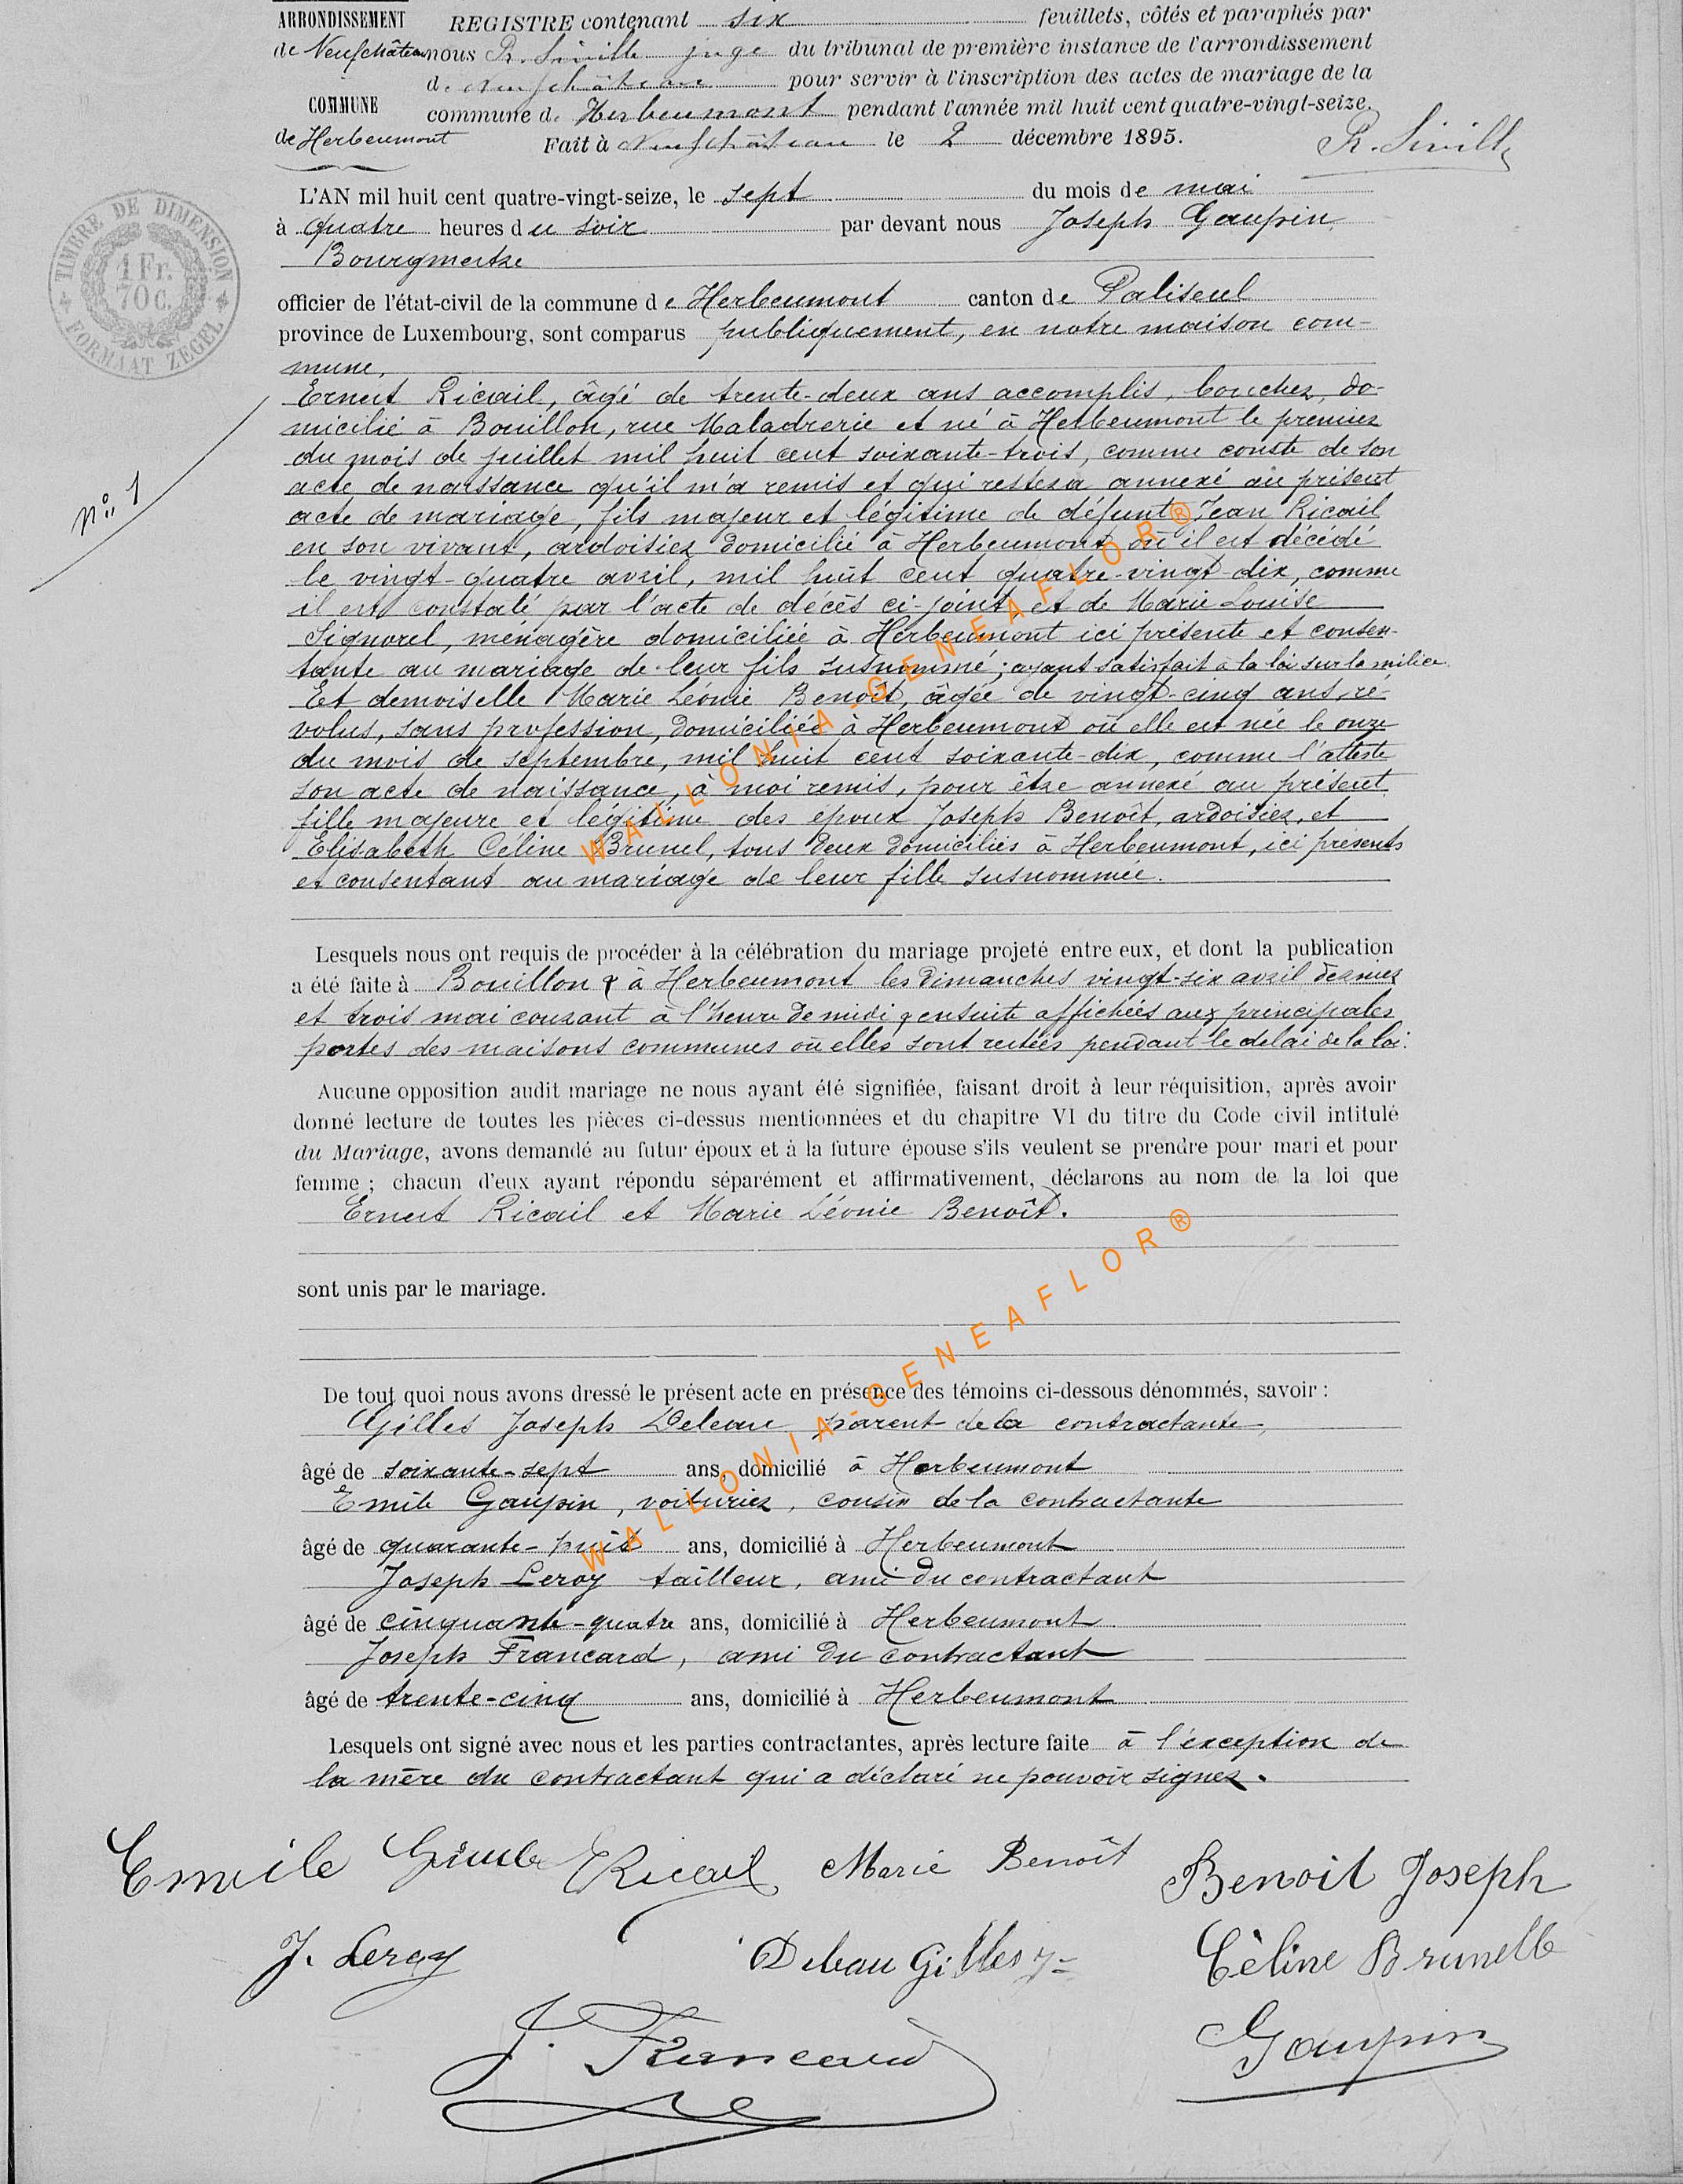 ARRONDISSEMENT
de Neufchâteau
COMMUNE
de Herbeumont
REGISTRE contenant six feuillets, côtés et paraphés par
nous juge du tribunal de première instance de l'arrondissement
de Neufchâteau pour servir à l'inscription des actes de mariage de la
commune de Herbeumont pendant l'année mil huit cent quatre-vingt-seize.
Fait à Neufchâteau le 2 décembre 1895.
TIMBRE DE DIMENSION
1 Fr.
70 C.
FORMAAT ZEGEL
L'AN mil huit cent quatre-vingt-seize, le sept du mois de mai
à quatre heures du soir par devant nous Joseph Gaupin
Bourgmestre
officier de l'état-civil de la commune de Herbeumont canton de Paliseul
province de Luxembourg, sont comparus publiquement, en notre maison com-
mune,
n° 1
Ernest Ricail, âgé de trente-deux ans accomplis, boucher, do-
micilié à Bouillon, rue Maladrerie et né à Herbeumont le premier
du mois de juillet mil huit cent soixante-trois, comme conste de son
acte de naissance qu'il m'a remis et qui restera annexé au présent
acte de mariage, fils majeur et légitime de défunt Jean Ricail
en son vivant, ardoisier domicilié à Herbeumont où il est décédé
le vingt-quatre avril, mil huit cent quatre-vingt-dix, comme
il est constaté par l'acte de décès ci-joint et de Marie Louise
Signorel, ménagère domiciliée à Herbeumont ici présente et consen-
tante au mariage de leur fils susnommé; ayant satisfait à la loi sur la milice
Et demoiselle Marie Léonie Benoît, âgée de vingt-cinq ans, ré-
volus, sans profession, domiciliée à Herbeumont où elle est née le onze
du mois de septembre, mil huit cent soixante-dix, comme l'atteste
son acte de naissance, à moi remis, pour être annexé au présent
fille majeure et légitime des époux Joseph Benoît, ardoisier, et
Elisabeth Céline Brunel, tous deux domiciliés à Herbeumont, ici présents
et consentant au mariage de leur fille susnommée.
Lesquels nous ont requis de procéder à la célébration du mariage projeté entre eux, et dont la publication
a été faite à Bouillon & à Herbeumont les dimanches vingt-six avril dernier
et trois mai courant à l'heure de midi & ensuite affichées aux principales
portes des maisons communes où elles sont restées pendant le délai de la loi.
Aucune opposition audit mariage ne nous ayant été signifiée, faisant droit à leur réquisition, après avoir
donné lecture de toutes les pièces ci-dessus mentionnées et du chapitre VI du titre du Code civil intitulé
du Mariage, avons demandé au futur époux et à la future épouse s'ils veulent se prendre pour mari et pour
femme ; chacun d'eux ayant répondu séparément et affirmativement, déclarons au nom de la loi que
Ernest Ricail et Marie Léonie Benoît.
sont unis par le mariage.
De tout quoi nous avons dressé le présent acte en présence des témoins ci-dessous dénommés, savoir :
Gilles Joseph Deleau parent de la contractante,
âgé de soixante-sept ans, domicilié à Herbeumont
Emile Gaupin, voiturier, cousin de la contractante
âgé de quarante-huit ans, domicilié à Herbeumont
Joseph Leroy tailleur, ami du contractant
âgé de cinquante-quatre ans, domicilié à Herbeumont
Joseph Francard, ami du contractant
âgé de trente-cinq ans, domicilié à Herbeumont
Lesquels ont signé avec nous et les parties contractantes, après lecture faite à l'exception de
la mère du contractant qui a déclaré ne pouvoir signer.
Emile ERicail Marie Benoît Benoit Joseph
J. Leroy Deleau Gilles J= Céline Brunelle
J. Francard Gaupin
WALLONIA-GENEAFLOR®
WALLONIA-GENEAFLOR®